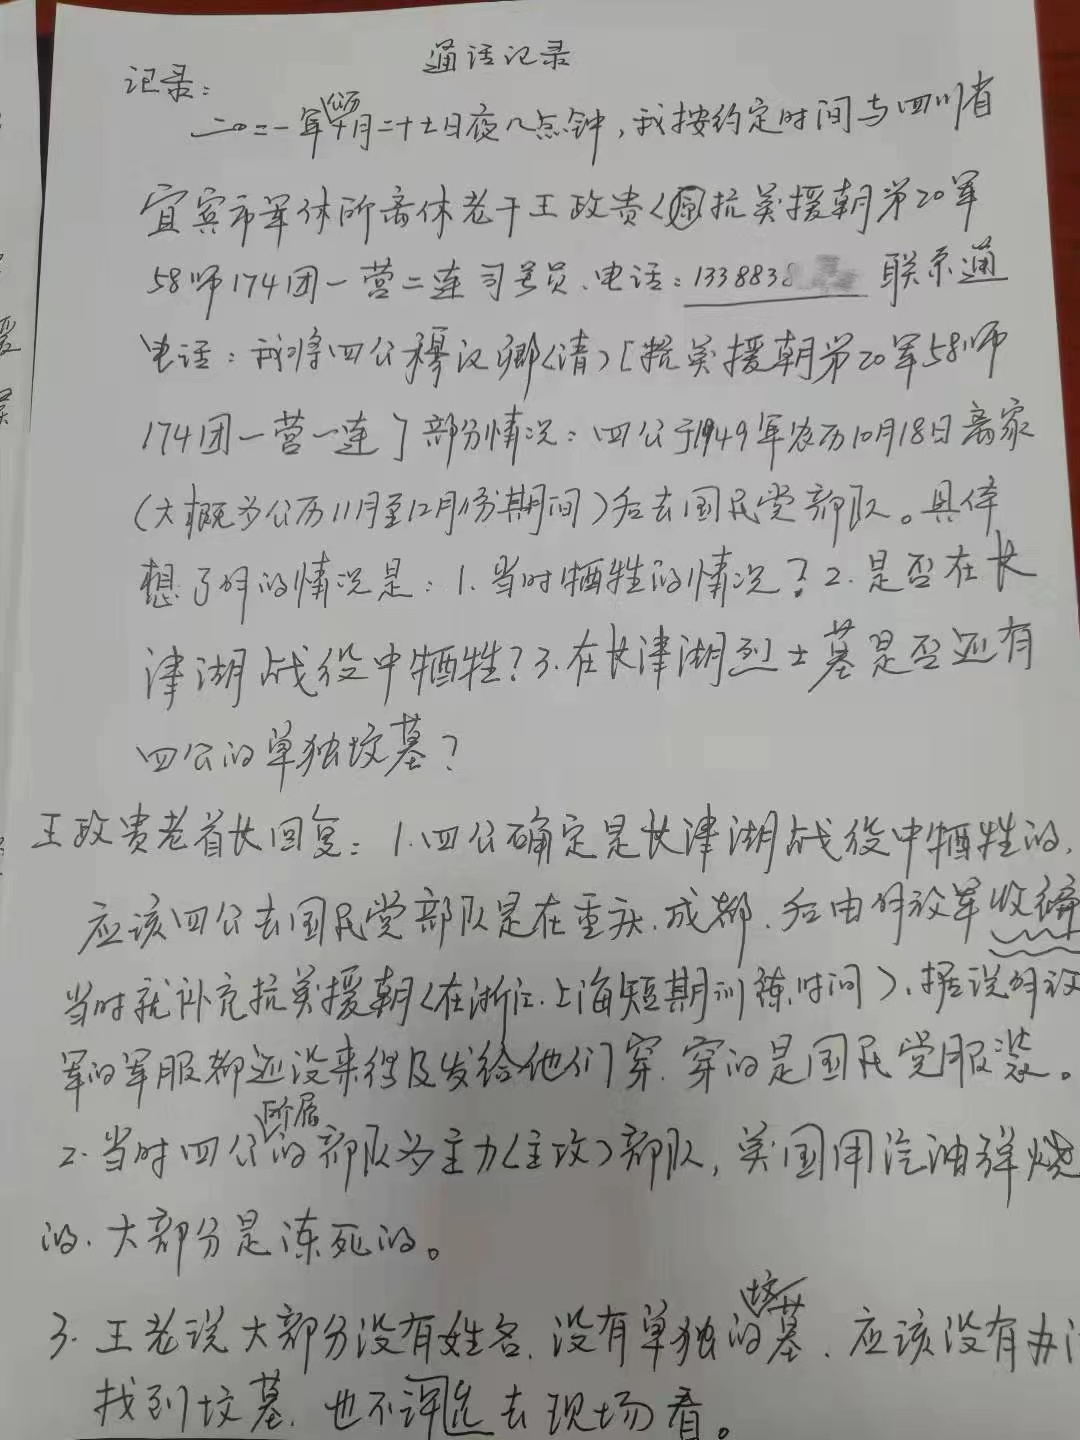 通话记录
记录：
二〇二一年公历十月二十七日夜八点钟，我按约定时间与四川省
宜宾市军休所离休老干王政贵（抗美援朝第20军
58师174团一营二连司号员、电话：1338838 联系通
电话：我将四公穆汉卿（清）[抗美援朝第20军58师
174团一营一连]部分情况：四公于1949年农历10月18日离家
（大概为公历11月至12月份期间）后去国民党部队。具体
想了解的情况是：1.当时牺牲的情况？2.是否在长
津湖战役中牺牲？3.在长津湖烈士墓是否还有
四公的单独坟墓？
王政贵老首长回复：1.四公确定是长津湖战役中牺牲的，
应该四公去国民党部队是在重庆.成都.后由解放军收编
当时就补充抗美援朝（在浙江.上海短期训练时间）、据说解放
军的军服都还没来得及发给他们穿.穿的是国民党服装。
2.当时四公阶层的部队为主力（主攻）部队，美国用汽油弹烧
的.大部分是冻死的。
3.王老说大部分没有姓名.没有单独的坟墓.应该没有办
找到坟墓.也不 去现场看。